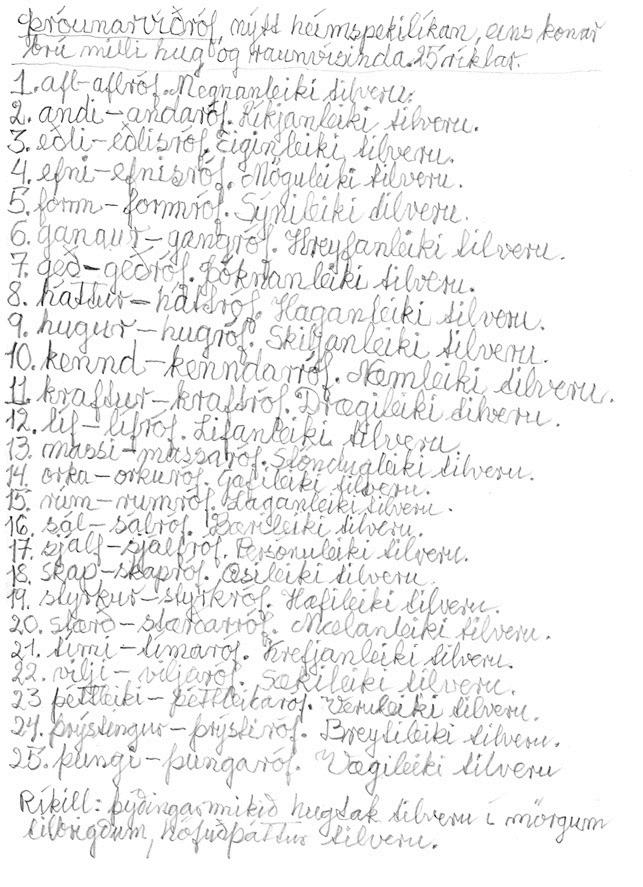 Þróunarviðróf, nýtt heimspekilíkan, eins konar
brú milli hug og raunvísinda. 25 ríklar.
1. afl-aflróf. Megnanleiki tilveru.
2. andi-andaróf. Ríkjanleiki tilveru.
3. eðli-eðlisróf. Eiginleiki tilveru.
4. efni-efnisróf. Möguleiki tilveru.
5. form-formróf. Sýnileiki tilveru.
6. gangur-gangróf. Hreyfanleiki tilveru.
7. geð-geðróf. Þóknanleiki tilveru.
8. háttur-háttróf. Haganleiki tilveru.
9. hugur-hugróf. Skiljanleiki tilveru.
10. kennd-kenndarróf. Næmleiki tilveru.
11. kraftur-kraftróf. Drægileiki tilveru.
12. líf-lífróf. Lifanleiki tilveru
13. massi-massaróf. Stöndugleiki tilveru.
14. orka-orkuróf. Gæfileiki tilveru.
15. rúm-rúmróf. Laganleiki tilveru.
16. sál-sálróf. Bærleiki tilveru.
17. sjálf-sjálfróf. Persónuleiki tilveru.
18. skap-skapróf. Æsileiki tilveru.
19. styrkur-styrkróf. Hæfileiki tilveru.
20. stærð-stærðarróf. Mælanleiki tilveru.
21. tími-tímaróf. Krefjanleiki tilveru.
22. vilji-viljaróf. Sækileiki tilveru.
23 þéttleiki-þéttleikaróf. Veruleiki tilveru.
24. þrýstingur-þrýstiróf. Breytileiki tilveru.
25. þungi-þungaróf. Vægileiki tilveru
Ríkill: þýðingarmikið hugtak tilveru í mörgum
tilbrigðum, höfuðþáttur tilveru.